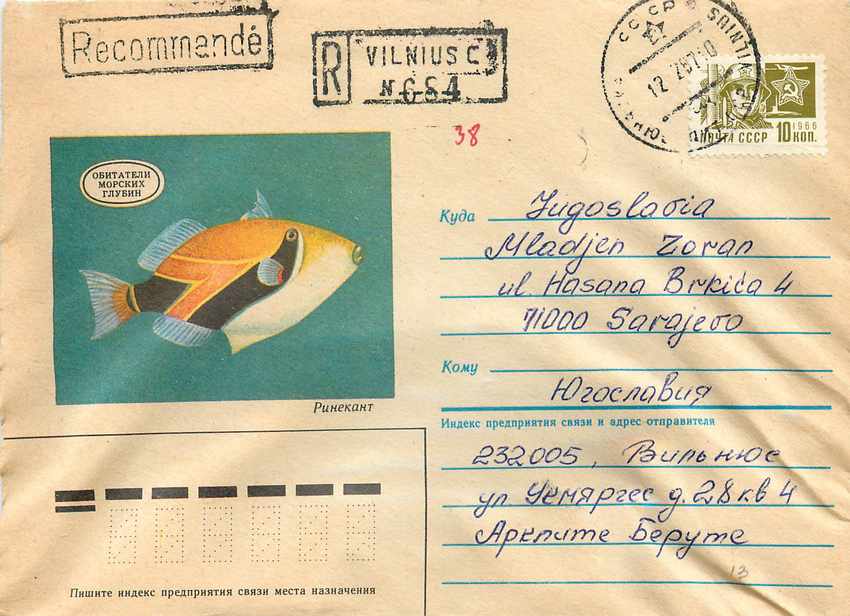 Recommandé
R VILNIUS C
N 684
38
СССР
ПОЧТА СССР 10 КОП. 1966
ОБИТАТЕЛИ
МОРСКИХ
ГЛУБИН
Ринекант
Куда Jugoslavia
Mladjen Zoran
ul. Hasana Brkića 4
71000 Sarajevo
Кому
Югославия
Индекс предприятия связи и адрес отправителя
232005, Вильнюс
ул. Укмяргес д. 28 кв 4
Беруте
13
Пишите индекс предприятия связи места назначения